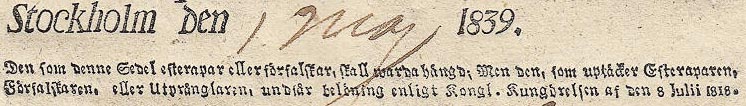 Stockholm den 1 Maj 1839.
Den som denne Sedel efterapar eller förfalskar, skall warda hängd; Men den, som uptäcker Efteraparen,
Förfalskaren, eller Utprånglaren, undfår belöning enligt Kongl. Kungörelsen af den 8 Julii 1818.